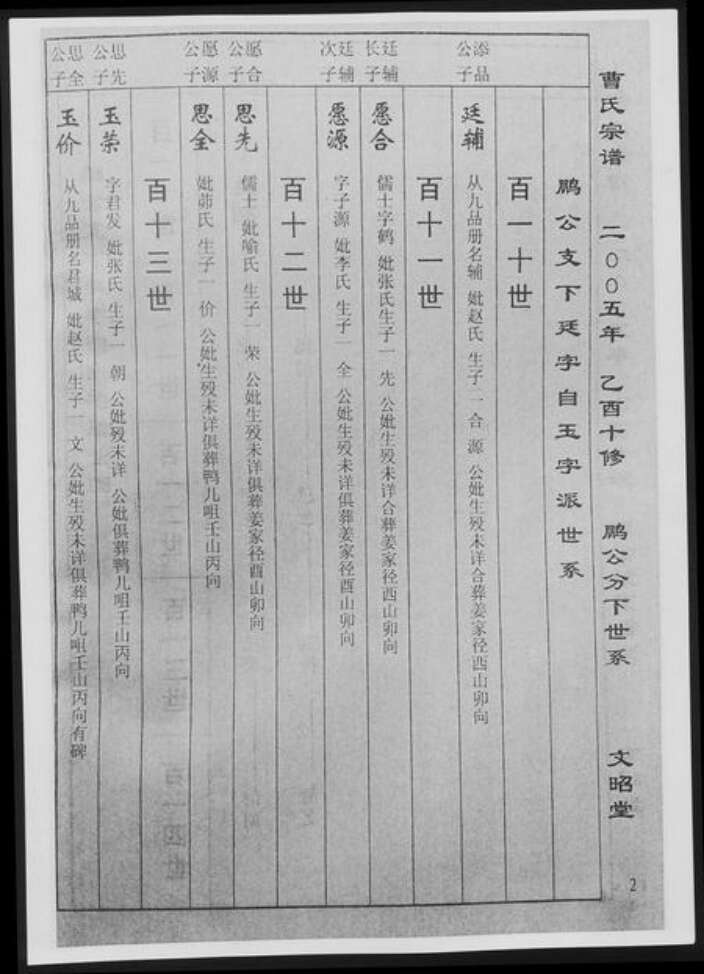 曹氏宗谱 二00五年 乙酉十修 鹏公分下世系 文昭堂 2
鹏公支下廷字自玉字派世系
百一十世
添品公子
廷辅 从九品册名辅 妣赵氏 生子二 合 源 公妣生殁未详合葬姜家径酉山卯向
百十一世
廷辅长子
愿合 儒士字鹤 妣张氏生子一 先 公妣生殁未详合葬姜家径酉山卯向
廷辅次子
愿源 字子源 妣李氏 生子一 全 公妣生殁未详俱葬姜家径酉山卯向
百十二世
愿合公子
思先 儒士 妣喻氏 生子一 荣 公妣生殁未详俱葬姜家径酉山卯向
愿源公子
思全 妣茆氏 生子一 价 公妣生殁未详俱葬鸭儿咀壬山丙向
百十三世
思先公子
玉荣 字君发 妣张氏 生子一 朝 公妣殁未详 公妣俱葬鸭儿咀壬山丙向
思全公子
玉价 从九品册名君城 妣赵氏 生子一 文 公妣生殁未详俱葬鸭儿咀壬山丙向有碑